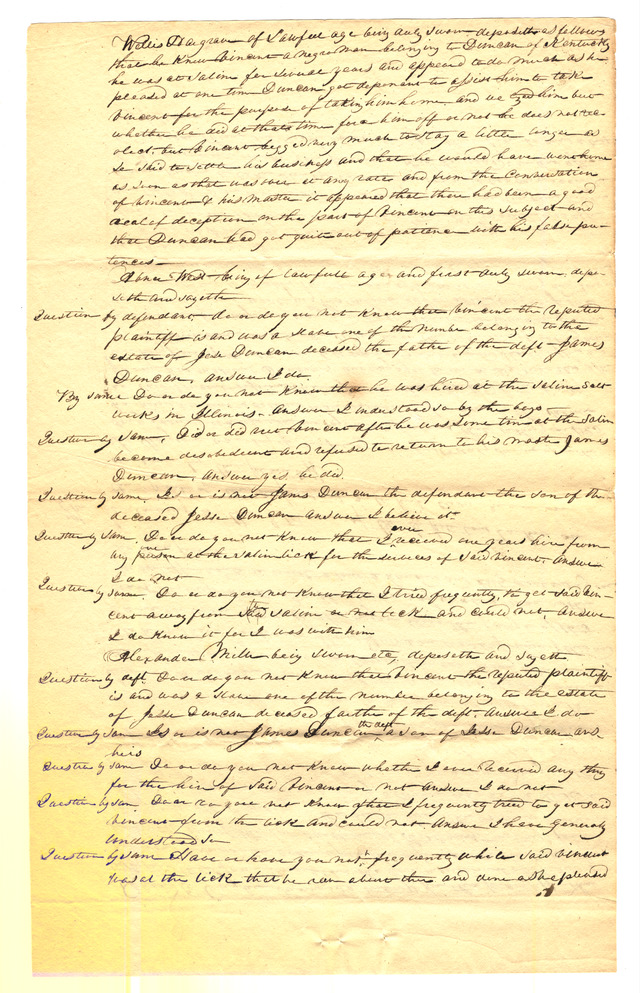 Willis Hargrave of Lawful age being duly sworn deposeth as follows
that he knew Vincent a negro man belonging to Duncan of Kentucky
he was at Salin for several years and appeared to do much as he
pleased at one time Duncan got deponent to assist him to take
Vincent for the purpose of taking him home. and we tyed him but
whether he did at that time force him off or not he does not rec-
olect. but Vincent begged very much to stay a little longer as
he said to settle his business and that he would have went home
as soon as that was over at any rate and from the conversation
of Vincent & his master it appeared that there had been a good
deal of deception on the part of Vincent on the subject and
that Duncan had got quite out of patience with his false pre-
tences—
Abner West being of lawfull age and first duly sworn depo-
seth and sayeth
Question by defendant, do or do you not know that Vincent the reputed
plaintiff is and was a slave one of the number belonging to the
estate of Jesse Duncan deceased the father of the deft James
Duncan, answer I do
By same Do or do you not know that he was hired at the Salin Salt
works in Illinois. Answer I understood so by the boys
Question by same, Did or did not Vincent after he was some time at the Salin
become disobedient and refused to return to his master James
Duncan, answer yes he did
Question by same. Is or is not James Duncan the defendant the son of the
deceased Jesse Duncan answer I believe it
Question by same. Do or do you not know that I ever receive one years hire from
any person at the Salin lick for the services of said Vincent. Answer
I do not
Question by same. Do or do you not know that I tried frequently to get said Vin-
cent away from the Salin or lick and could not, answer
I do know it for I was with him
Alexander Miller being sworn etc, deposeth and sayeth
Question by deft. Do or do you not know that Vincent the reputed plaintiff
is and was a slave one of the number belonging to the estate
of Jesse Duncan deceased farther of the deft. answer I do
Question by same Is or is not James Duncan the deft a son of Jesse Duncan
his
Question by same Do or do you not know whether I ever received any thing
for the hire of said Vincent or not Answer I do not
Question by same. Do or do you not know that I frequently tried to get said
Vincent from the lick and could not Answer I have generaly
understood so
Question by same Have or have you not, frequently while said Vincent
was at the lick that he ran about there and done as he pleased